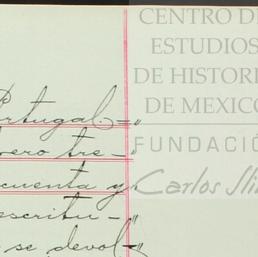 CENTRO DE
ESTUDIOS
DE HISTORI
DE MEXICO
FUNDACIÓ
Carlos Sli
Portugal.="
vero tre-"
cuenta y"
escritu-"
se devol-"